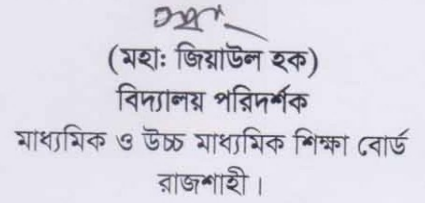 (মহাঃ জিয়াউল হক)
বিদ্যালয় পরিদর্শক
মাধ্যমিক ও উচ্চ মাধ্যমিক শিক্ষা বোর্ড
রাজশাহী।